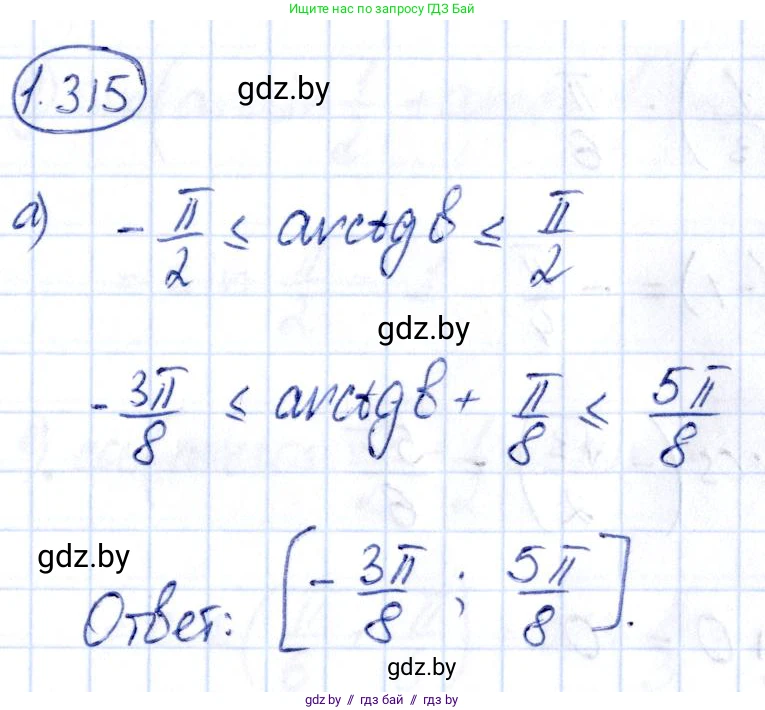 Ищите нас по запросу ГДЗ Бай
1.315
gdz.by
а) -π/2 ≤ arctg b ≤ π/2
gdz.by
-3π/8 ≤ arctg b + π/8 ≤ 5π/8
gdz.by
Ответ: [-3π/8 ; 5π/8].
gdz.by
gdz.by // гдз бай // гдз by